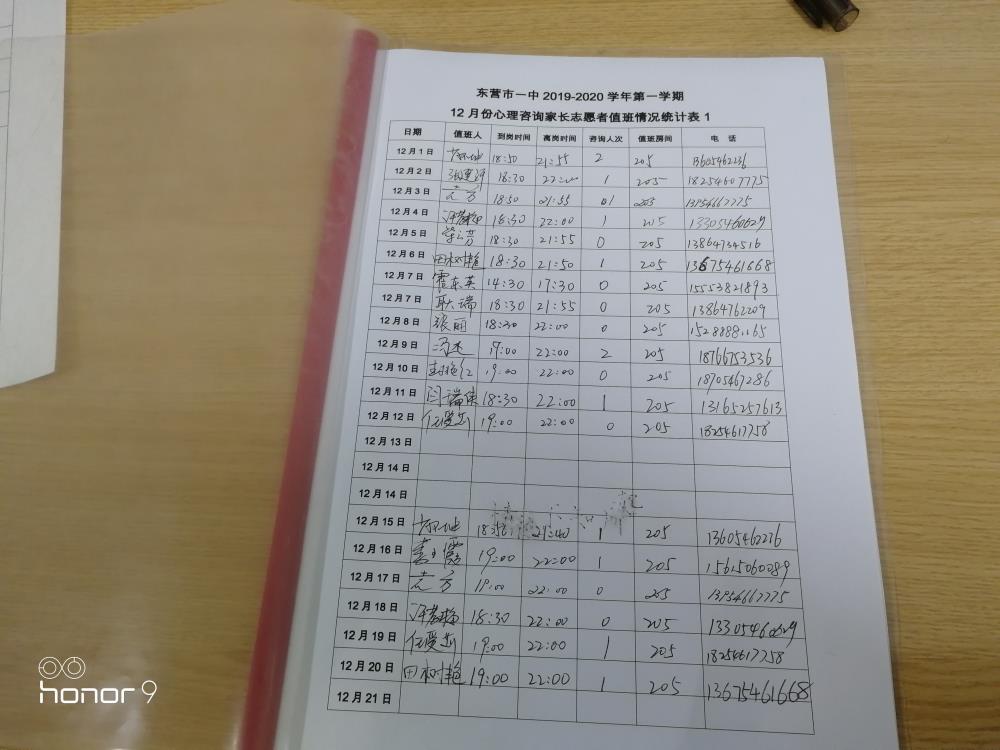 东营市一中 2019-2020 学年第一学期
12 月份心理咨询家长志愿者值班情况统计表 1
日期 值班人 到岗时间 离岗时间 咨询人次 值班房间 电 话
12 月 1 日 18:50 21:55 2 205
12 月 2 日 18:30 22:00 1 205 18254607775
12 月 3 日 18:50 21:55 205 13954667775
12 月 4 日 18:30 22:00 1 205 13305460629
12 月 5 日 18:30 21:55 0 205 13864734516
12 月 6 日 田树艳 18:30 21:50 1 205 13675461668
12 月 7 日 霍东英 14:30 17:30 0 205 15553821893
12 月 7 日 耿瑞 18:30 21:55 0 205 13864762209
12 月 8 日 张丽 18:30 22:00 0 205 15288881165
12 月 9 日 19:00 22:00 2 205 18766753536
12 月 10 日 19:00 22:00 0 205 18705467286
12 月 11 日 18:30 22:00 1 205 13165257613
12 月 12 日 任爱 19:00 22:00 0 205 18254617758
12 月 13 日
12 月 14 日
12 月 14 日
12 月 15 日 21:40 1 205
12 月 16 日 19:00 22:00 1 205 15615060089
12 月 17 日 19:00 22:00 0 205 13954667775
12 月 18 日 18:30 22:00 0 205 13305460629
12 月 19 日 任爱 19:00 22:00 1 205 18254617758
12 月 20 日 田树艳 19:00 22:00 1 205 13675461668
12 月 21 日
honor 9